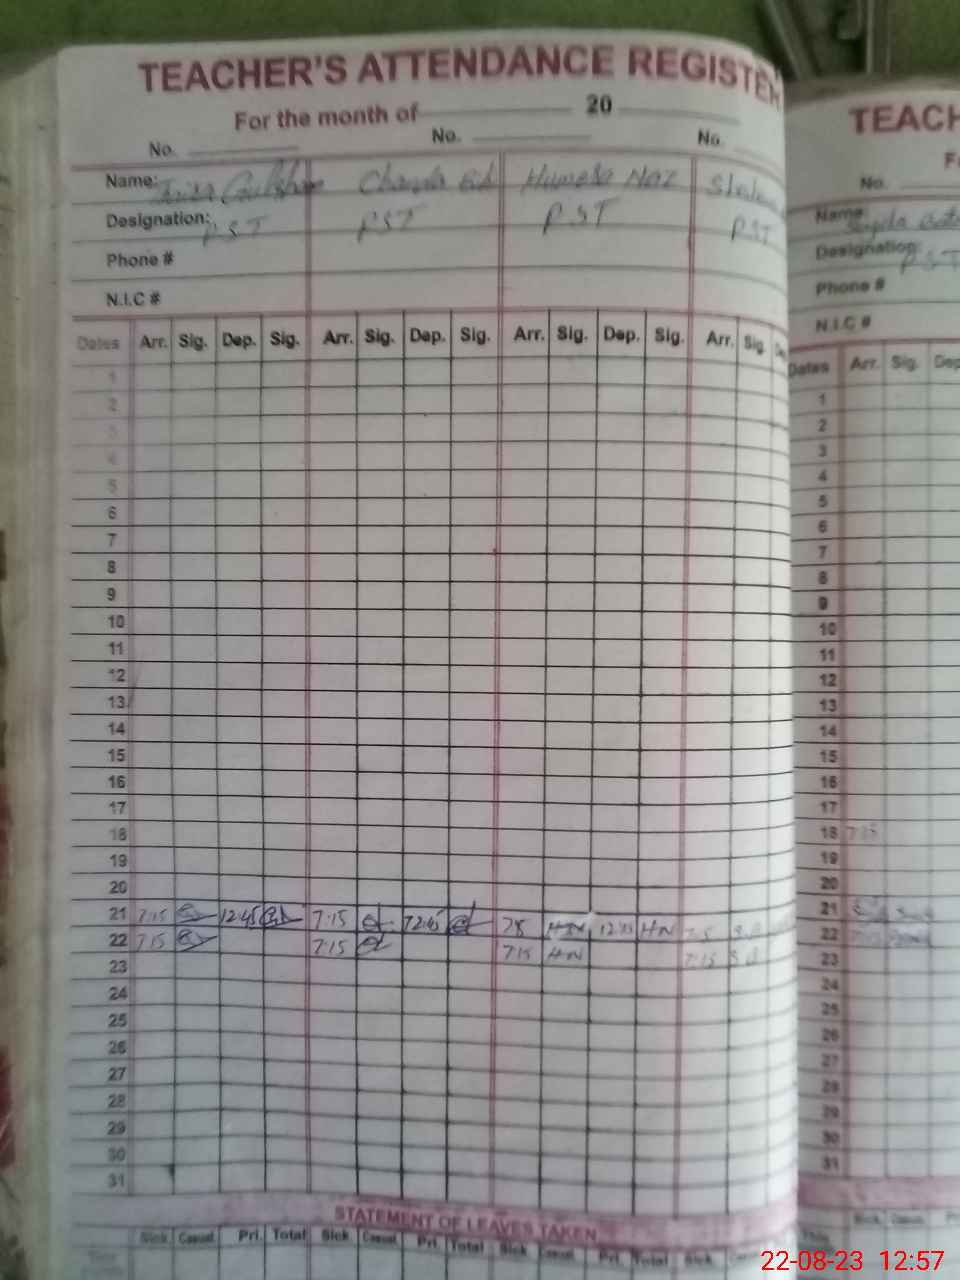 TEACHER'S ATTENDANCE REGISTER
For the month of 20
No. No. No.
Name: Humera Naz
Designation: PST PST PST PST
Phone #
N.I.C #
Dates Arr. Sig. Dep. Sig. Arr. Sig. Dep. Sig. Arr. Sig. Dep. Sig. Arr. Sig.
1
2
3
4
5
6
7
8
9
10
11
12
13
14
15
16
17
18
19
20
21 7:15 12:45 7:15 12:45 HN 12:45 HN
22 7:15 7:15 7:15 HN 7:15
23
24
25
26
27
28
29
30
31
STATEMENT OF LEAVES TAKEN
Sick Casual Pri. Total Sick Casual Pri. Total Sick Casual Pri. Total Sick
TEACH
No.
Name
Designation: PST
Phone #
N.I.C #
Dates Arr. Sig. Dep
1
2
3
4
5
6
7
8
9
10
11
12
13
14
15
16
17
18 7:15
19
20
21
22
23
24
25
26
27
28
29
30
31
Sick Casual
22-08-23 12:57